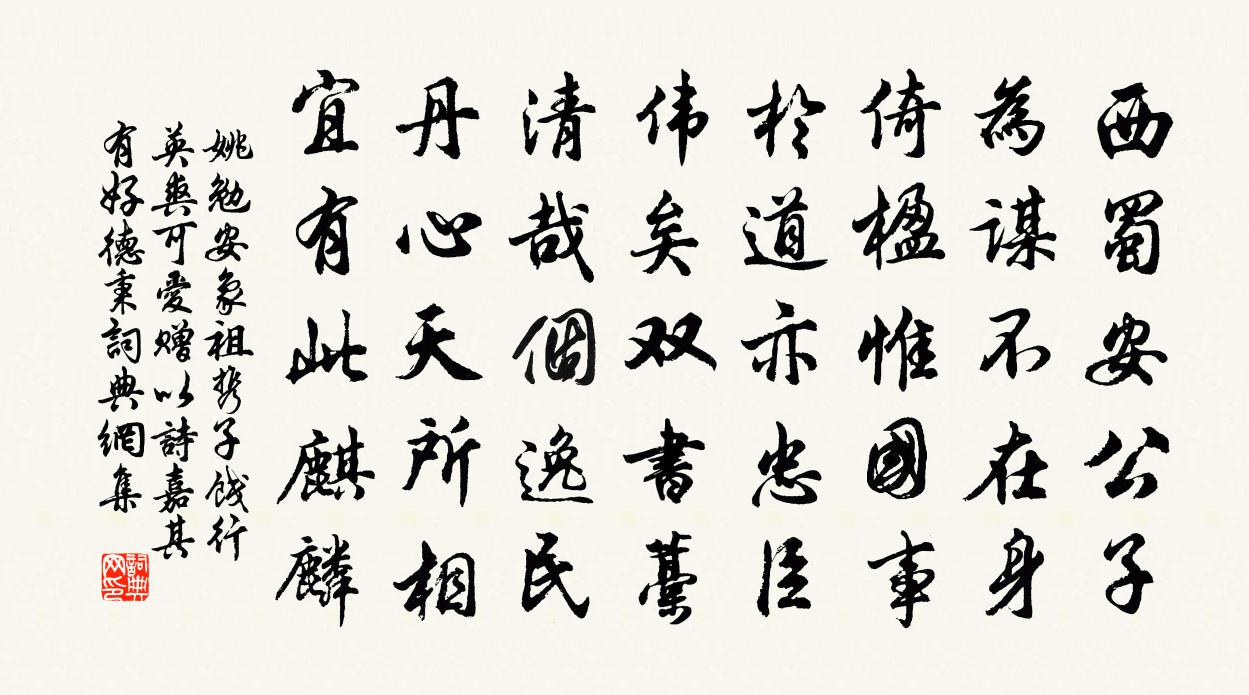 西蜀安公子
為謀不在身
倚楹惟國事
於道亦忠臣
伟矣双書藁
清哉個逸民
丹心天所相
宜有此麒麟
姚勉安象祖携子饯行
英爽可愛赠以詩嘉其
有好德秉詞典網集
詞典
网印